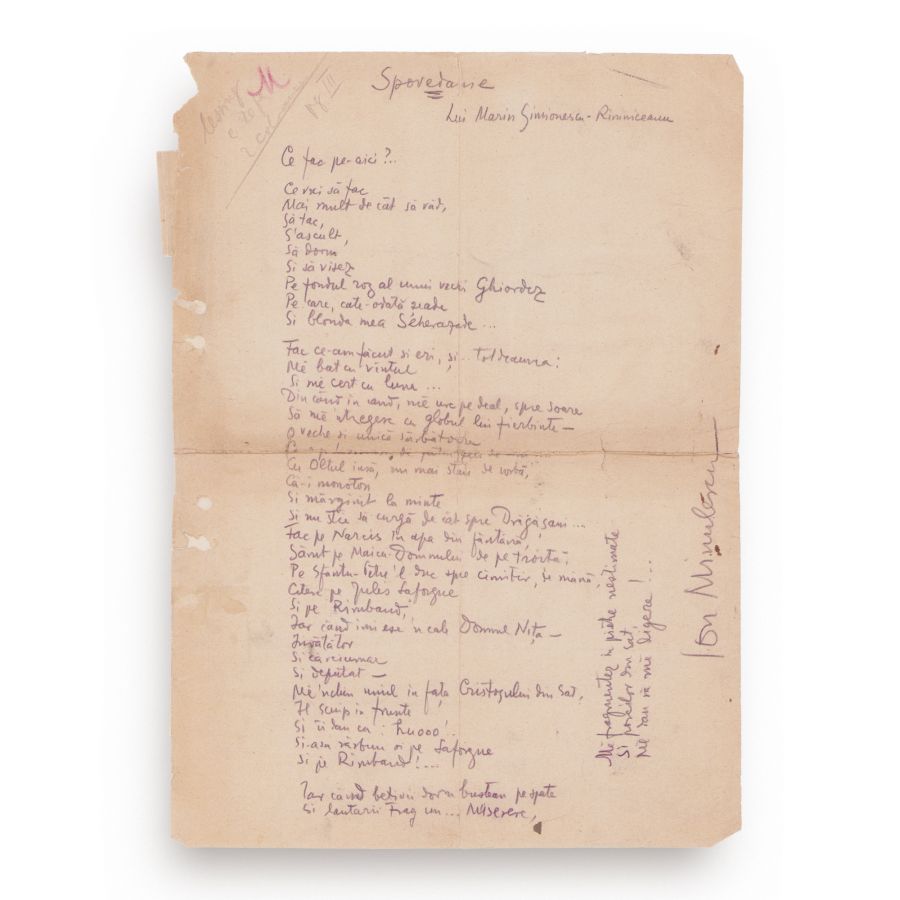 M
pg III
Spovedanie
Lui Marin Simionescu-Rimniceanu
Ce fac pe-aici?..
Ce vrei să fac
Mai mult de cât să văd,
Să tac,
S'ascult,
Să dorm
Si să visez
Pe fondul roz al unui vechi Ghiordez
Pe care, cate-odată seade
Si blonda mea Séherazade...
Fac ce-am făcut si eri, și... totdeauna:
Mĕ bat cu vîntul
Si mĕ cert cu luna...
Din când în când, mĕ urc pe deal, spre soare
Să mĕ 'ntregesc cu globul lui fierbinte —
O veche si unică sărbătoare
Ce
Cu Oltul însă, nu mai stau de vorbă,
Că-i monoton
Si mărginit la minte
Si nu stie să curgă de cât spre Drăgăşani...
Fac pe Narcis în apa din fântână,
Sărut pe Maica Domnului de pe troiță,
Pe Sfântu-Petre'l duc spre cimitir, de mână,
Citesc pe Jules Laforgue
Si pe Rimbaud,
Iar când imi ese 'n cale Domnul Nița —
Învățător
Si cârciumar
Si deputat —
Mĕ 'nchin umil în fața Cristosului din sat,
Îl scuip în frunte
Si îi dau cu: huooo!..
Si-asa răsbun si pe Laforgue
Si pe Rimbaud!...
Iar când betivii dorm bustean pe spate
Si lautarii trag un... Miserere,
Mĕ fragmentez în pietre nestimate
Si porcilor din sat,
Mĕ dau să mĕ digere!...
Ion Minulescu